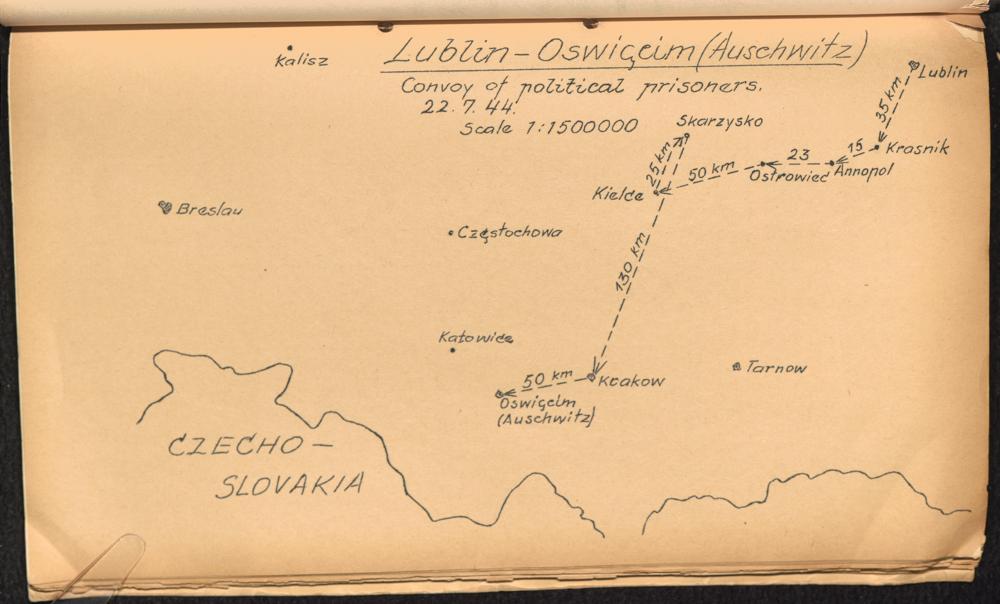 Lublin – Oswięcim (Auschwitz)
Convoy of political prisoners.
22.7.44.
Scale 1:1500000
Kalisz
Lublin
35 km
Skarzysko
Krasnik
15
Annopol
23
Ostrowiec
50 km
25 km
Kielce
Breslau
Częstochowa
130 km
Katowice
Tarnow
Krakow
50 km
Oswięcim
(Auschwitz)
CZECHO –
SLOVAKIA